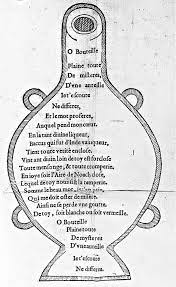 O Bouteille
Plaine toute
De misteres,
D'vne aureille
Iet'escoute
Ne differes,
Et le mot proferes,
Auquel pend mon cœur.
En la tant diuine liqueur,
Baccus qui fut d'Inde vainqueur,
Tient toute verité enclose.
Vint ant diuin loin de toy est forclose
Toute mensonge, & toute tromperie.
En ioye soit l'Aire de Noach close,
Lequel de toy nous fist la temperie.
Somme le beau mot,
Qui me doit oster de misere.
Ainsi ne se perde vne goutte.
De toy, soit blanche ou soit vermeille.
O Bouteille
Plaine toute
De mysteres
D'vne aureille
Iet'escoute
Ne differes.